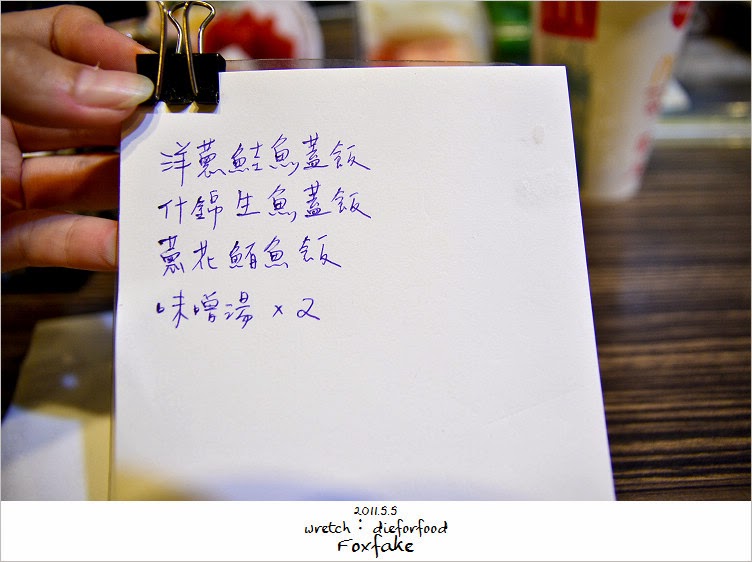 洋蔥鮭魚蓋飯
什錦生魚蓋飯
蔥花鮪魚飯
味噌湯 x 2
2011.5.5
wretch：dieforfood
Foxfake